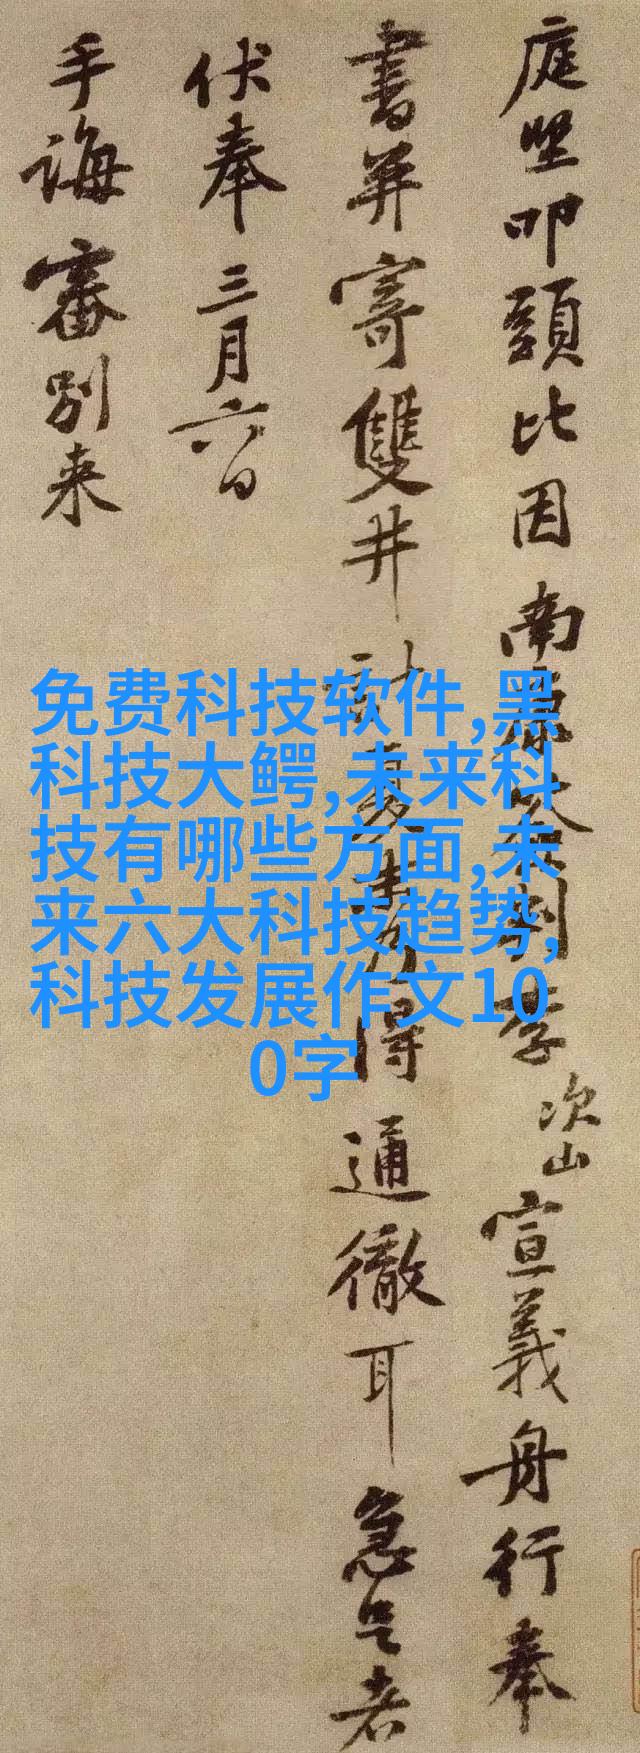 庭堅叩頭比因南康簽判李次山宣義舟行奉
書并寄雙井計夏得通徹耳急足者
伏奉三月六日
手誨審別来
免费科技软件,黑
科技大鳄,未来科
技有哪些方面,未
来六大科技趋势,
科技发展作文10
0字